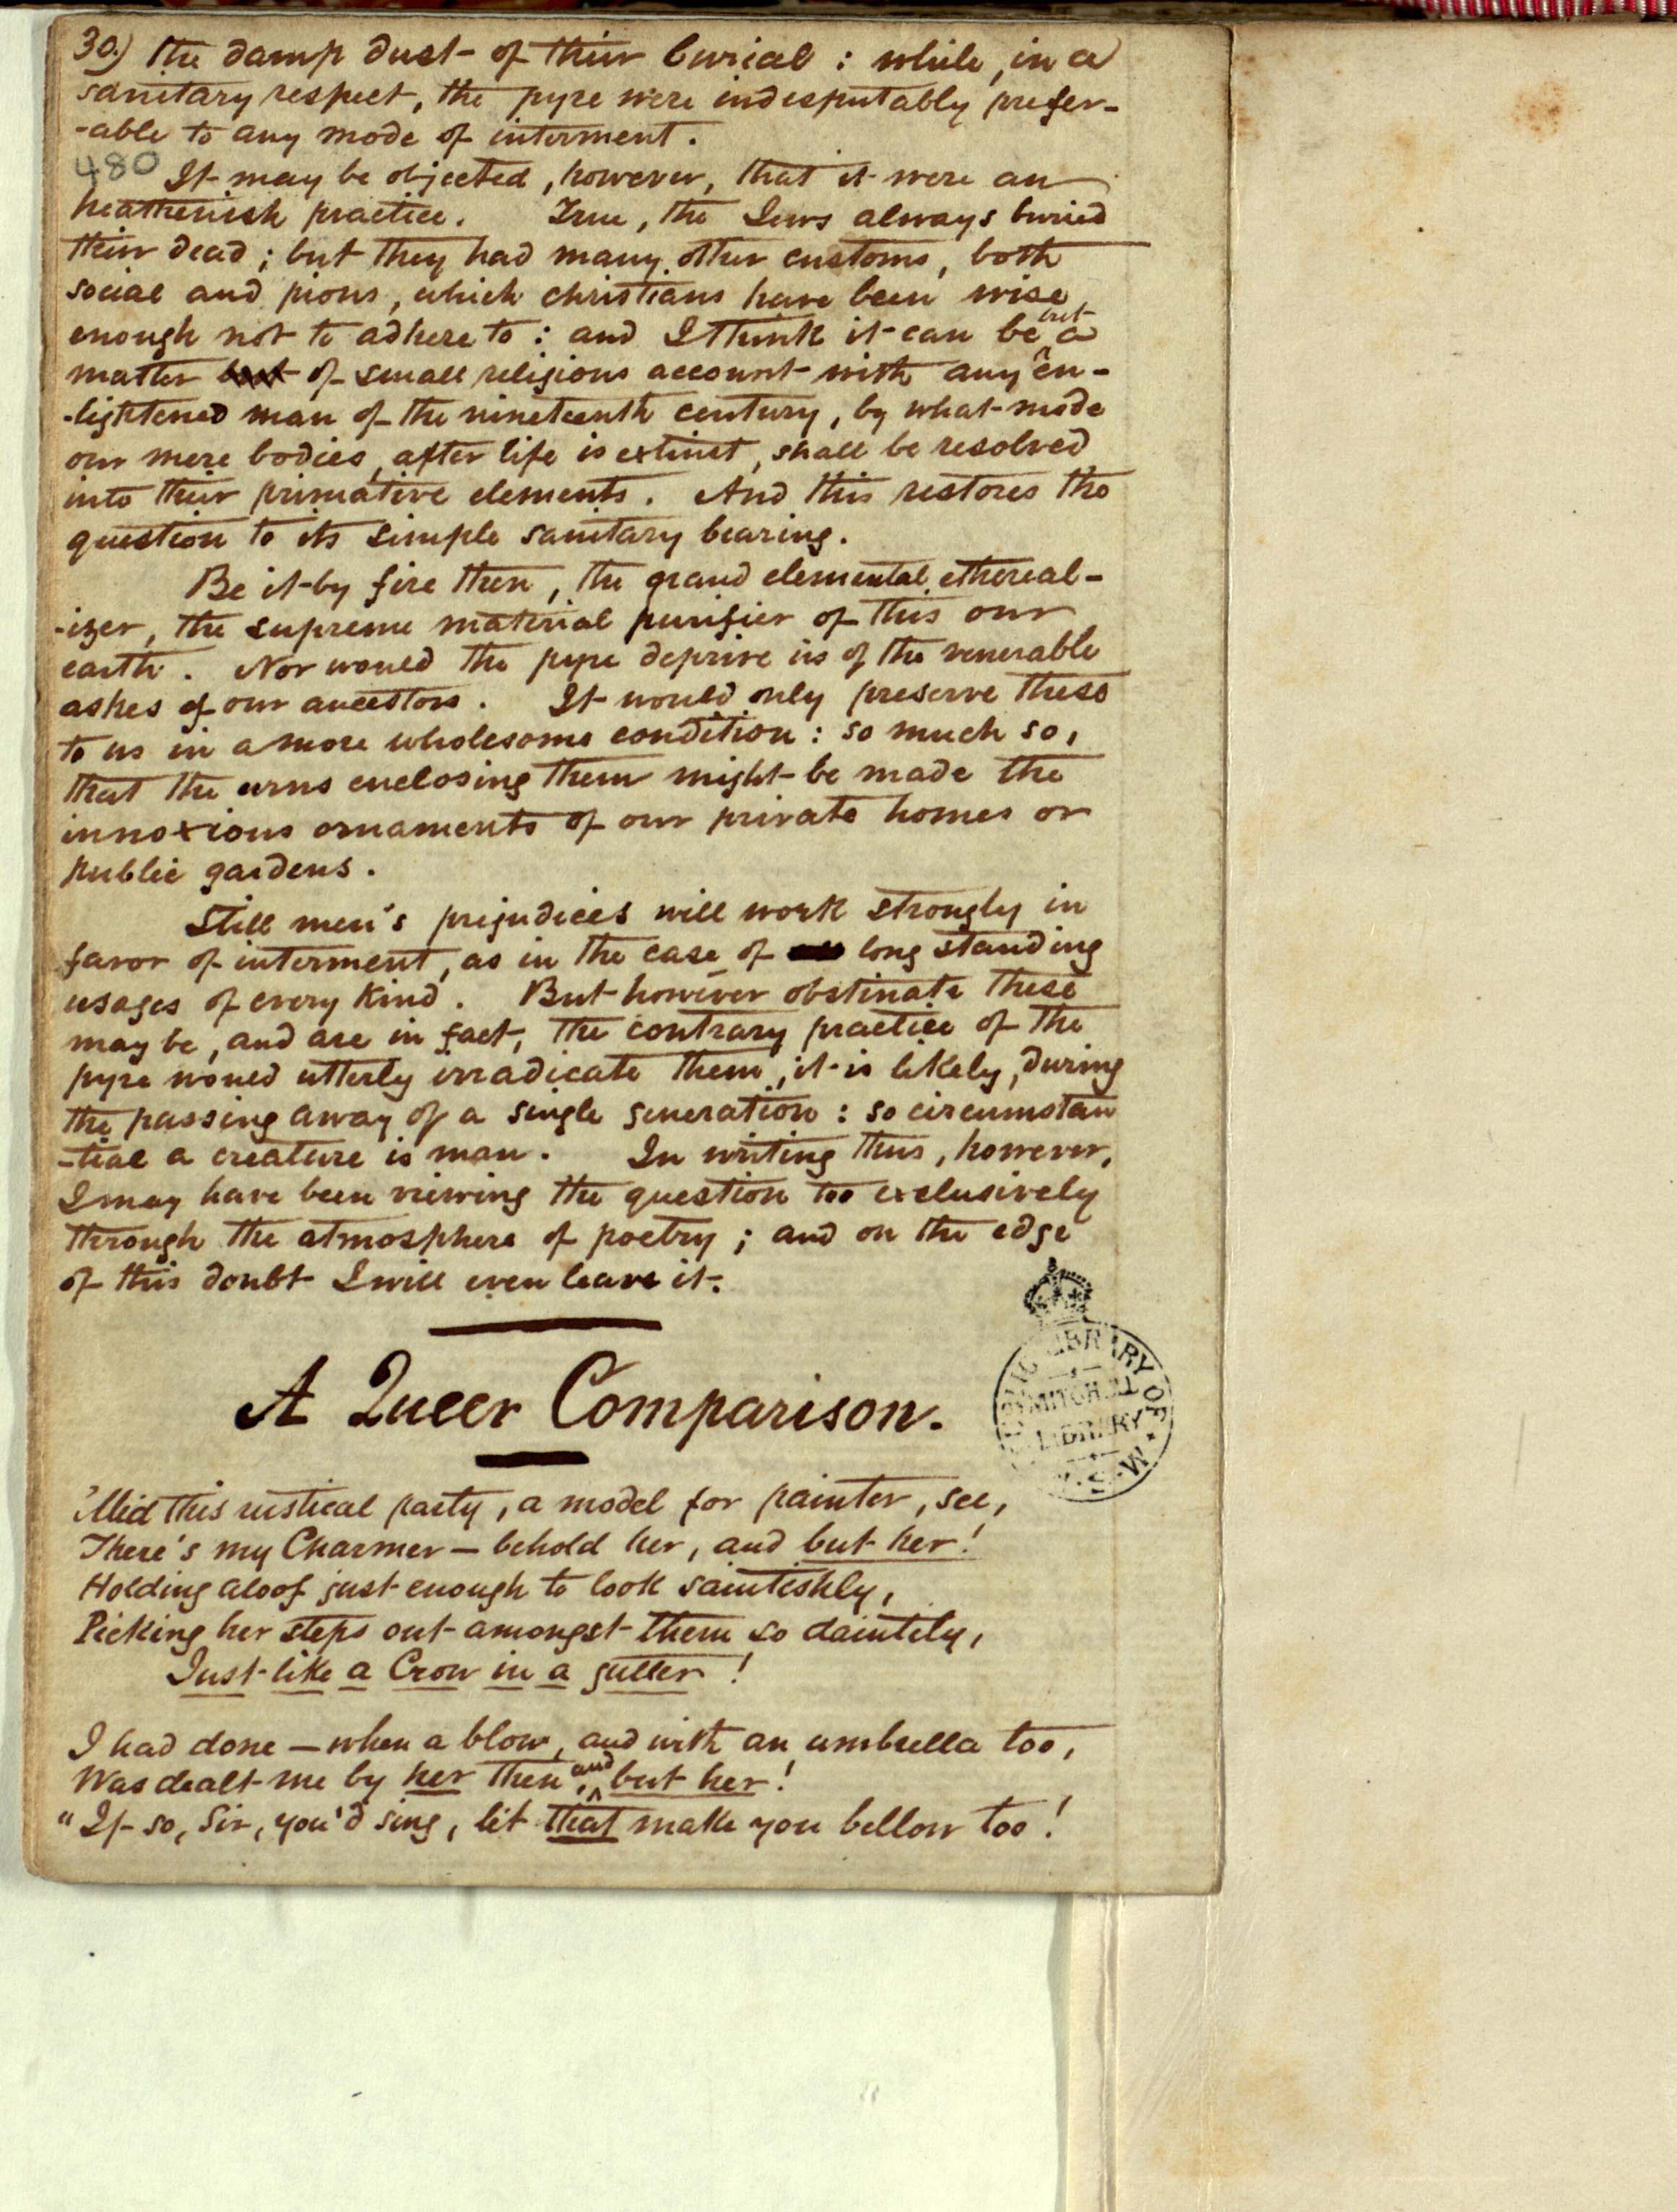 30.) the damp dust of their burial : while, in a
sanitary respect, the pyre were indisputably prefer-
-able to any mode of interment.
480
It may be objected, however, that it were an
heathenish practice. True, the Jews always buried
their dead; but they had many other customs, both
social and pious, which christians have been wise
enough not to adhere to : and I think it can be but a
matter but of small religious account with any en-
-lightened man of the nineteenth century, by what mode
our mere bodies, after life is extinct, shall be resolved
into their primative elements. And this restores the
question to its simple sanitary bearing.
Be it by fire then, the grand elemental ethereal-
-izer, the supreme material purifier of this our
earth. Nor would the pyre deprive us of the venerable
ashes of our ancestors. It would only preserve these
to us in a more wholesome condition : so much so,
that the urns enclosing them might be made the
innoxious ornaments of our private homes or
public gardens.
Still men's prejudices will work strongly in
favor of interment, as in the case of long standing
usages of every kind. But however obstinate these
may be, and are in fact, the contrary practice of the
pyre would utterly irradicate them, it is likely, during
the passing away of a single generation : so circumstan
-tial a creature is man. In writing thus, however,
I may have been viewing the question too exclusively
through the atmosphere of poetry ; and on the edge
of this doubt I will even leave it.
A Queer Comparison.
PUBLIC LIBRARY OF N.S.W.
MITCHELL
LIBRARY
'Mid this rustical party, a model for painter, see,
There's my Charmer — behold her, and but her!
Holding aloof just enough to look saintishly,
Picking her steps out amongst them so daintily,
Just like a Crow in a gutter!
I had done — when a blow, and with an umbrella too,
Was dealt me by her then, and but her!
"If so, Sir, you'd sing, let that make you bellow too!